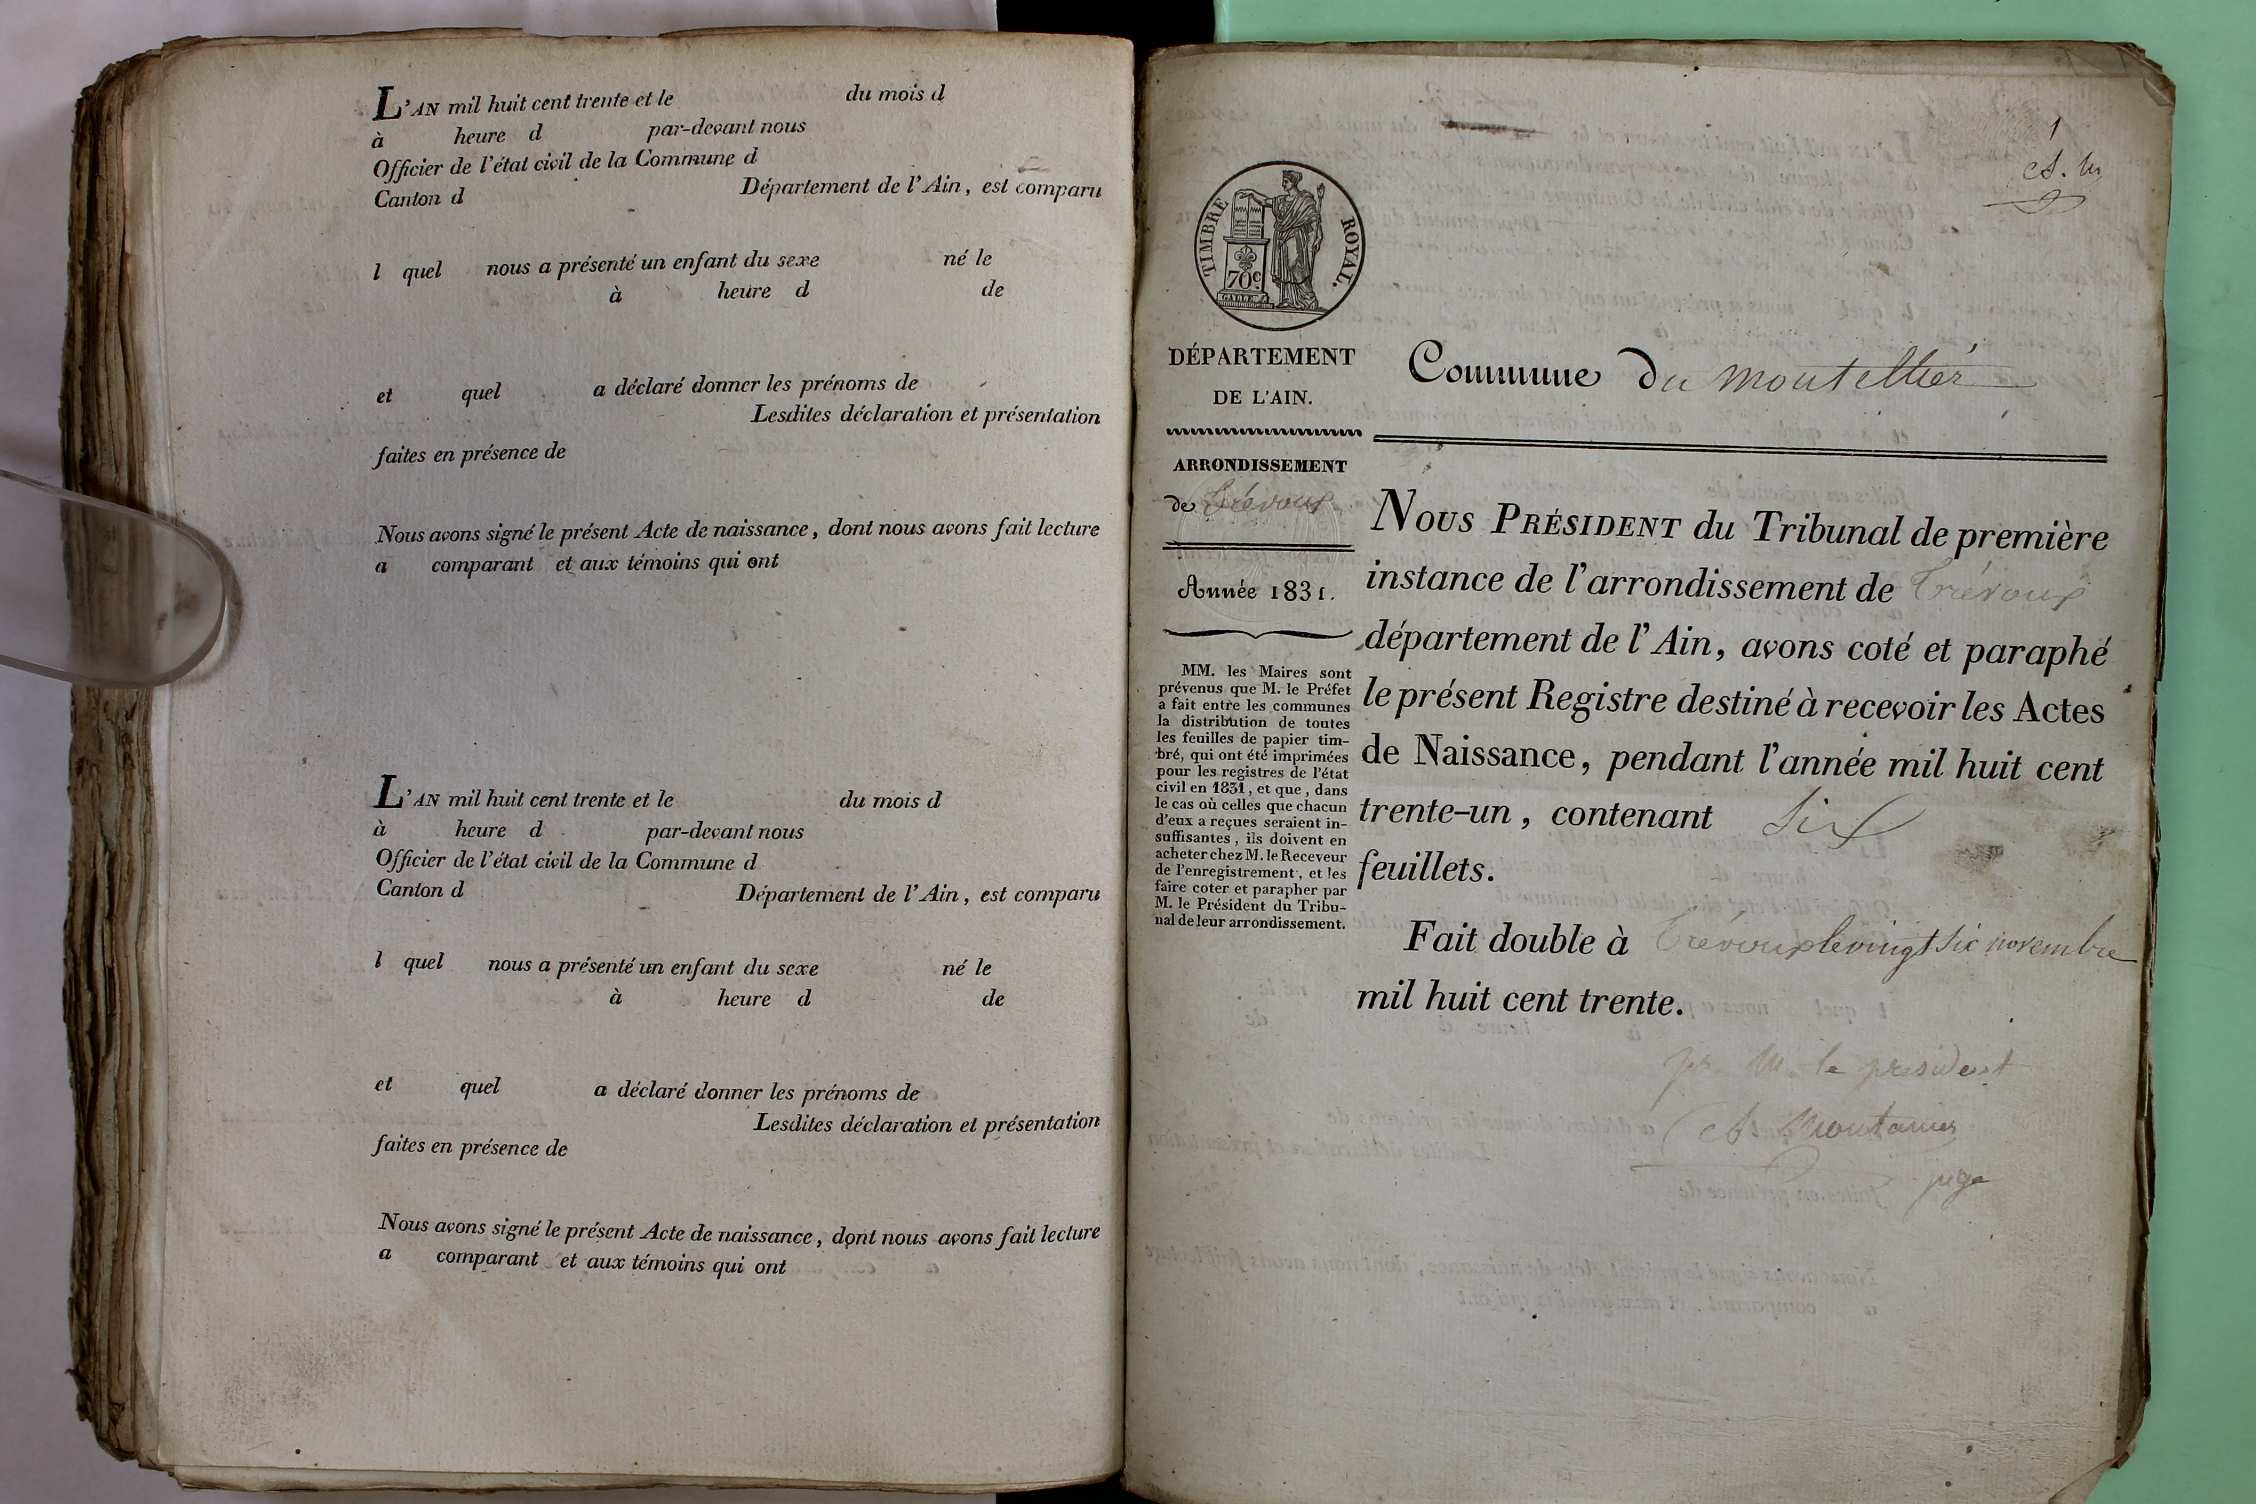 L'AN mil huit cent trente et le du mois d
à heure d par-devant nous
Officier de l'état civil de la Commune d
Canton d Département de l'Ain, est comparu
l quel nous a présenté un enfant du sexe né le
à heure d de
et quel a déclaré donner les prénoms de
Lesdites déclaration et présentation
faites en présence de
Nous avons signé le présent Acte de naissance, dont nous avons fait lecture
a comparant et aux témoins qui ont
L'AN mil huit cent trente et le du mois d
à heure d par-devant nous
Officier de l'état civil de la Commune d
Canton d Département de l'Ain, est comparu
l quel nous a présenté un enfant du sexe né le
à heure d de
et quel a déclaré donner les prénoms de
Lesdites déclaration et présentation
faites en présence de
Nous avons signé le présent Acte de naissance, dont nous avons fait lecture
a comparant et aux témoins qui ont
1
TIMBRE ROYAL.
70c.
DÉPARTEMENT
DE L'AIN.
ARRONDISSEMENT
de Trévoux
Année 1831.
MM. les Maires sont
prévenus que M. le Préfet
a fait entre les communes
la distribution de toutes
les feuilles de papier tim-
bré, qui ont été imprimées
pour les registres de l'état
civil en 1831, et que, dans
le cas où celles que chacun
d'eux a reçues seraient in-
suffisantes, ils doivent en
acheter chez M. le Receveur
de l'enregistrement, et les
faire coter et parapher par
M. le Président du Tribu-
nal de leur arrondissement.
Commune du montellier
NOUS PRÉSIDENT du Tribunal de première
instance de l'arrondissement de Trévoux
département de l'Ain, avons coté et paraphé
le présent Registre destiné à recevoir les Actes
de Naissance, pendant l'année mil huit cent
trente-un, contenant Six
feuillets.
Fait double à Trévoux le vingt six novembre
mil huit cent trente.
pr M. le president
juge